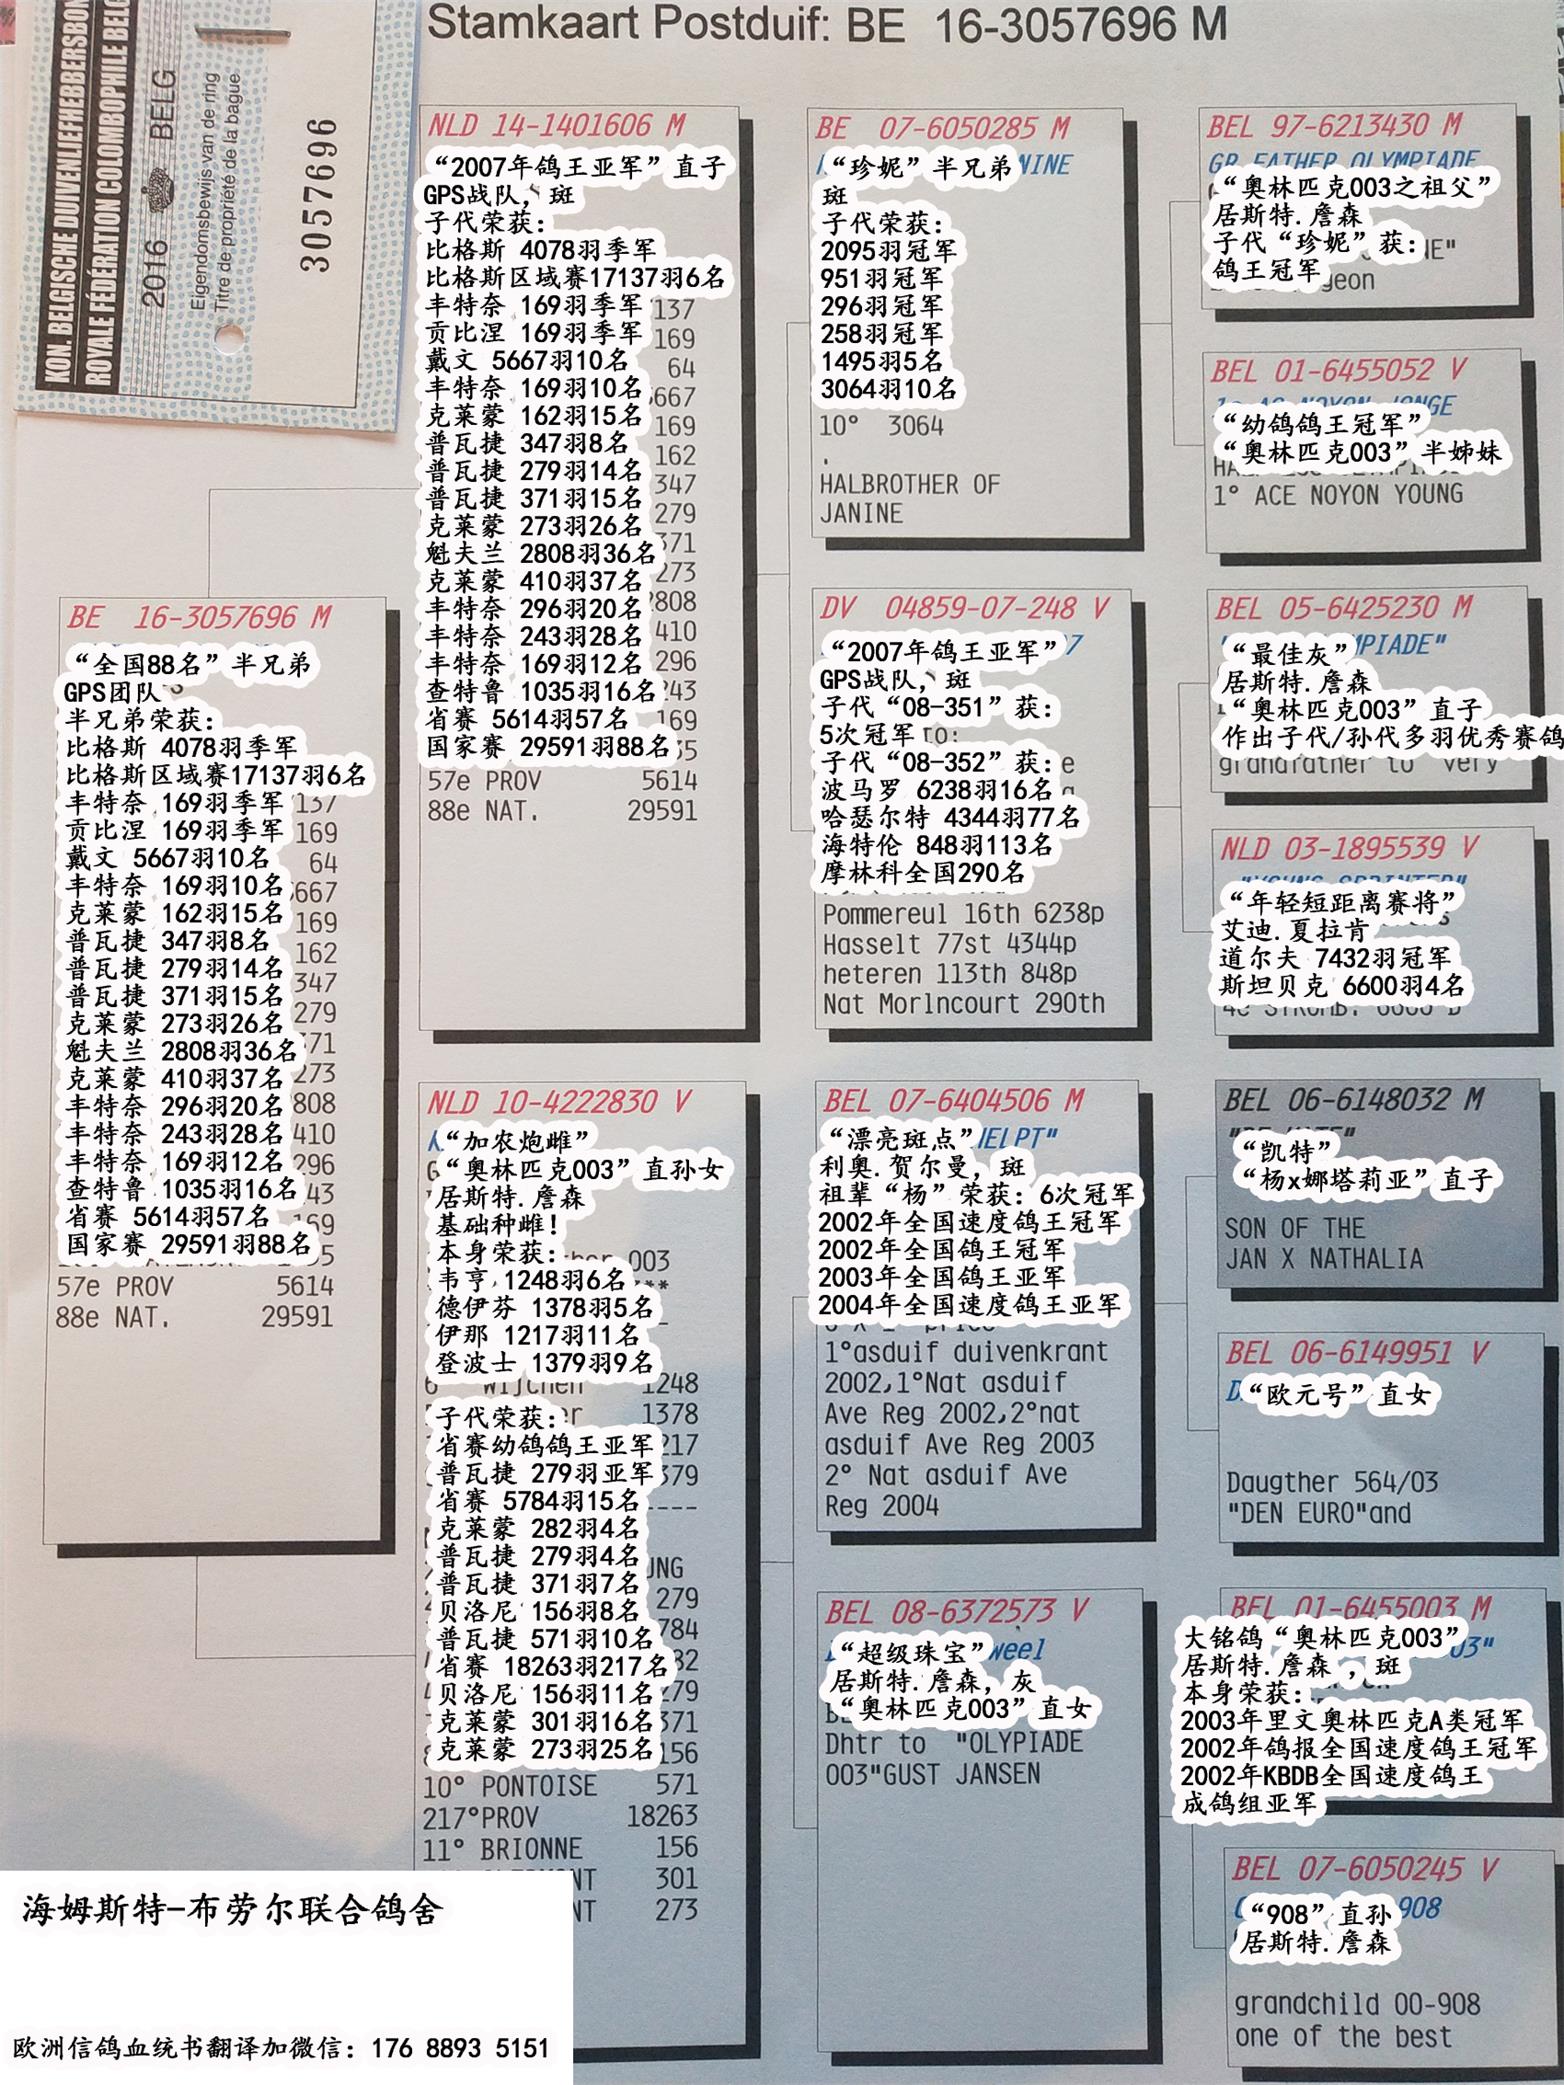 Stamkaart Postduif: BE 16-3057696 M
KON. BELGISCHE DUIVENLIEFHEBBERSBON
ROYALE FÉDÉRATION COLOMBOPHILE BEL
2016 BELG
Eigendomsbewijs van de ring
Titre de propriété de la bague
3057696
BE 16-3057696 M
“全国88名”半兄弟
GPS团队
半兄弟荣获:
比格斯 4078羽季军
比格斯区域赛17137羽6名
丰特奈 169羽季军 137
贡比涅 169羽季军 169
戴文 5667羽10名 64
丰特奈 169羽10名 667
克莱蒙 162羽15名 169
普瓦捷 347羽8名 162
普瓦捷 279羽14名 347
普瓦捷 371羽15名 279
克莱蒙 273羽26名 371
魁夫兰 2808羽36名
克莱蒙 410羽37名 273
丰特奈 296羽20名 808
丰特奈 243羽28名 410
丰特奈 169羽12名 296
查特鲁 1035羽16名 43
省赛 5614羽57名 169
国家赛 29591羽88名 35
57e PROV 5614
88e NAT. 29591
NLD 14-1401606 M
“2007年鸽王亚军”直子
GPS战队, 斑
子代荣获:
比格斯 4078羽季军
比格斯区域赛17137羽6名
丰特奈 169羽季军 137
贡比涅 169羽季军 169
戴文 5667羽10名 64
丰特奈 169羽10名 667
克莱蒙 162羽15名 169
普瓦捷 347羽8名 162
普瓦捷 279羽14名 347
普瓦捷 371羽15名 279
克莱蒙 273羽26名 371
魁夫兰 2808羽36名 273
克莱蒙 410羽37名 2808
丰特奈 296羽20名
丰特奈 243羽28名 410
丰特奈 169羽12名 296
查特鲁 1035羽16名 243
省赛 5614羽57名 169
国家赛 29591羽88名 35
57e PROV 5614
88e NAT. 29591
NLD 10-4222830 V
“加农炮雌”
“奥林匹克003”直孙女
居斯特.詹森
基础种雌!
本身荣获: 003
韦亨 1248羽6名
德伊芬 1378羽5名
伊那 1217羽11名
登波士 1379羽9名
6 Wijchen 1248
子代荣获: 1378
省赛幼鸽鸽王亚军 217
普瓦捷 279羽亚军 379
省赛 5784羽15名 ----
克莱蒙 282羽4名
普瓦捷 279羽4名
普瓦捷 371羽7名 UNG
贝洛尼 156羽8名 279
普瓦捷 571羽10名 784
省赛 18263羽217名 82
贝洛尼 156羽11名 279
克莱蒙 301羽16名 371
克莱蒙 273羽25名 156
10° PONTOISE 571
217°PROV 18263
11° BRIONNE 156
NT 301
NT 273
BE 07-6050285 M
“珍妮”半兄弟 NINE
斑
子代荣获:
2095羽冠军
951羽冠军
296羽冠军
258羽冠军
1495羽5名
3064羽10名
10° 3064
.
HALBROTHER OF
JANINE
DV 04859-07-248 V
“2007年鸽王亚军” 7
GPS战队, 斑
子代“08-351”获:
5次冠军 TO:
子代“08-352”获: e
波马罗 6238羽16名
哈瑟尔特 4344羽77名
海特伦 848羽113名
摩林科全国290名
Pommereul 16th 6238p
Hasselt 77st 4344p
heteren 113th 848p
Nat Morlncourt 290th
BEL 07-6404506 M
“漂亮斑点” HELPT"
利奥.贺尔曼, 斑
祖辈“杨”荣获: 6次冠军
2002年全国速度鸽王冠军
2002年全国鸽王冠军
2003年全国鸽王亚军
2004年全国速度鸽王亚军
1°asduif duivenkrant
2002,1°Nat asduif
Ave Reg 2002,2°nat
asduif Ave Reg 2003
2° Nat asduif Ave
Reg 2004
BEL 08-6372573 V
“超级珠宝” weel
居斯特.詹森, 灰
“奥林匹克003”直女
Dhtr to "OLYPIADE
003"GUST JANSEN
BEL 97-6213430 M
GR FATHER OLYMPIADE
“奥林匹克003之祖父”
居斯特.詹森
子代“珍妮”获: NE"
鸽王冠军 geon
BEL 01-6455052 V
“幼鸽鸽王冠军”
“奥林匹克003”半姊妹
1° ACE NOYON YOUNG
BEL 05-6425230 M
“最佳灰” MPIADE"
居斯特.詹森
“奥林匹克003”直子
作出子代/孙代多羽优秀赛鸽
grandfather to very
NLD 03-1895539 V
“年轻短距离赛将”
艾迪.夏拉肯
道尔夫 7432羽冠军
斯坦贝克 6600羽4名
BEL 06-6148032 M
“凯特”
“杨x娜塔莉亚”直子
SON OF THE
JAN X NATHALIA
BEL 06-6149951 V
“欧元号”直女
Daugther 564/03
"DEN EURO"and
BEL 01-6455003 M
大铭鸽“奥林匹克003” 03"
居斯特.詹森 , 斑
本身荣获:
2003年里文奥林匹克A类冠军
2002年鸽报全国速度鸽王冠军
2002年KBDB全国速度鸽王
成鸽组亚军
BEL 07-6050245 V
“908”直孙 908
居斯特.詹森
grandchild 00-908
one of the best
海姆斯特-布劳尔联合鸽舍
欧洲信鸽血统书翻译加微信: 176 8893 5151